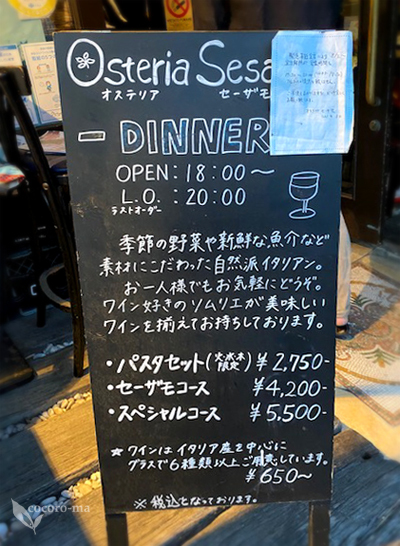 Osteria Sesa
オステリア セーザモ
DINNER
OPEN: 18:00~
L.O. : 20:00
ラストオーダー
季節の野菜や新鮮な魚介など
素材にこだわった自然派イタリアン。
お一人様でもお気軽にどうぞ。
ワイン好きのソムリエが美味しい
ワインを揃えてお待ちしております。
・パスタセット(火水木限定) ¥2,750-
・セーザモコース ¥4,200-
・スペシャルコース ¥5,500-
★ ワインはイタリア産を中心に
グラスで6種類以上ご用意しています。
¥650~
※税込となっております。
cocoro-ma